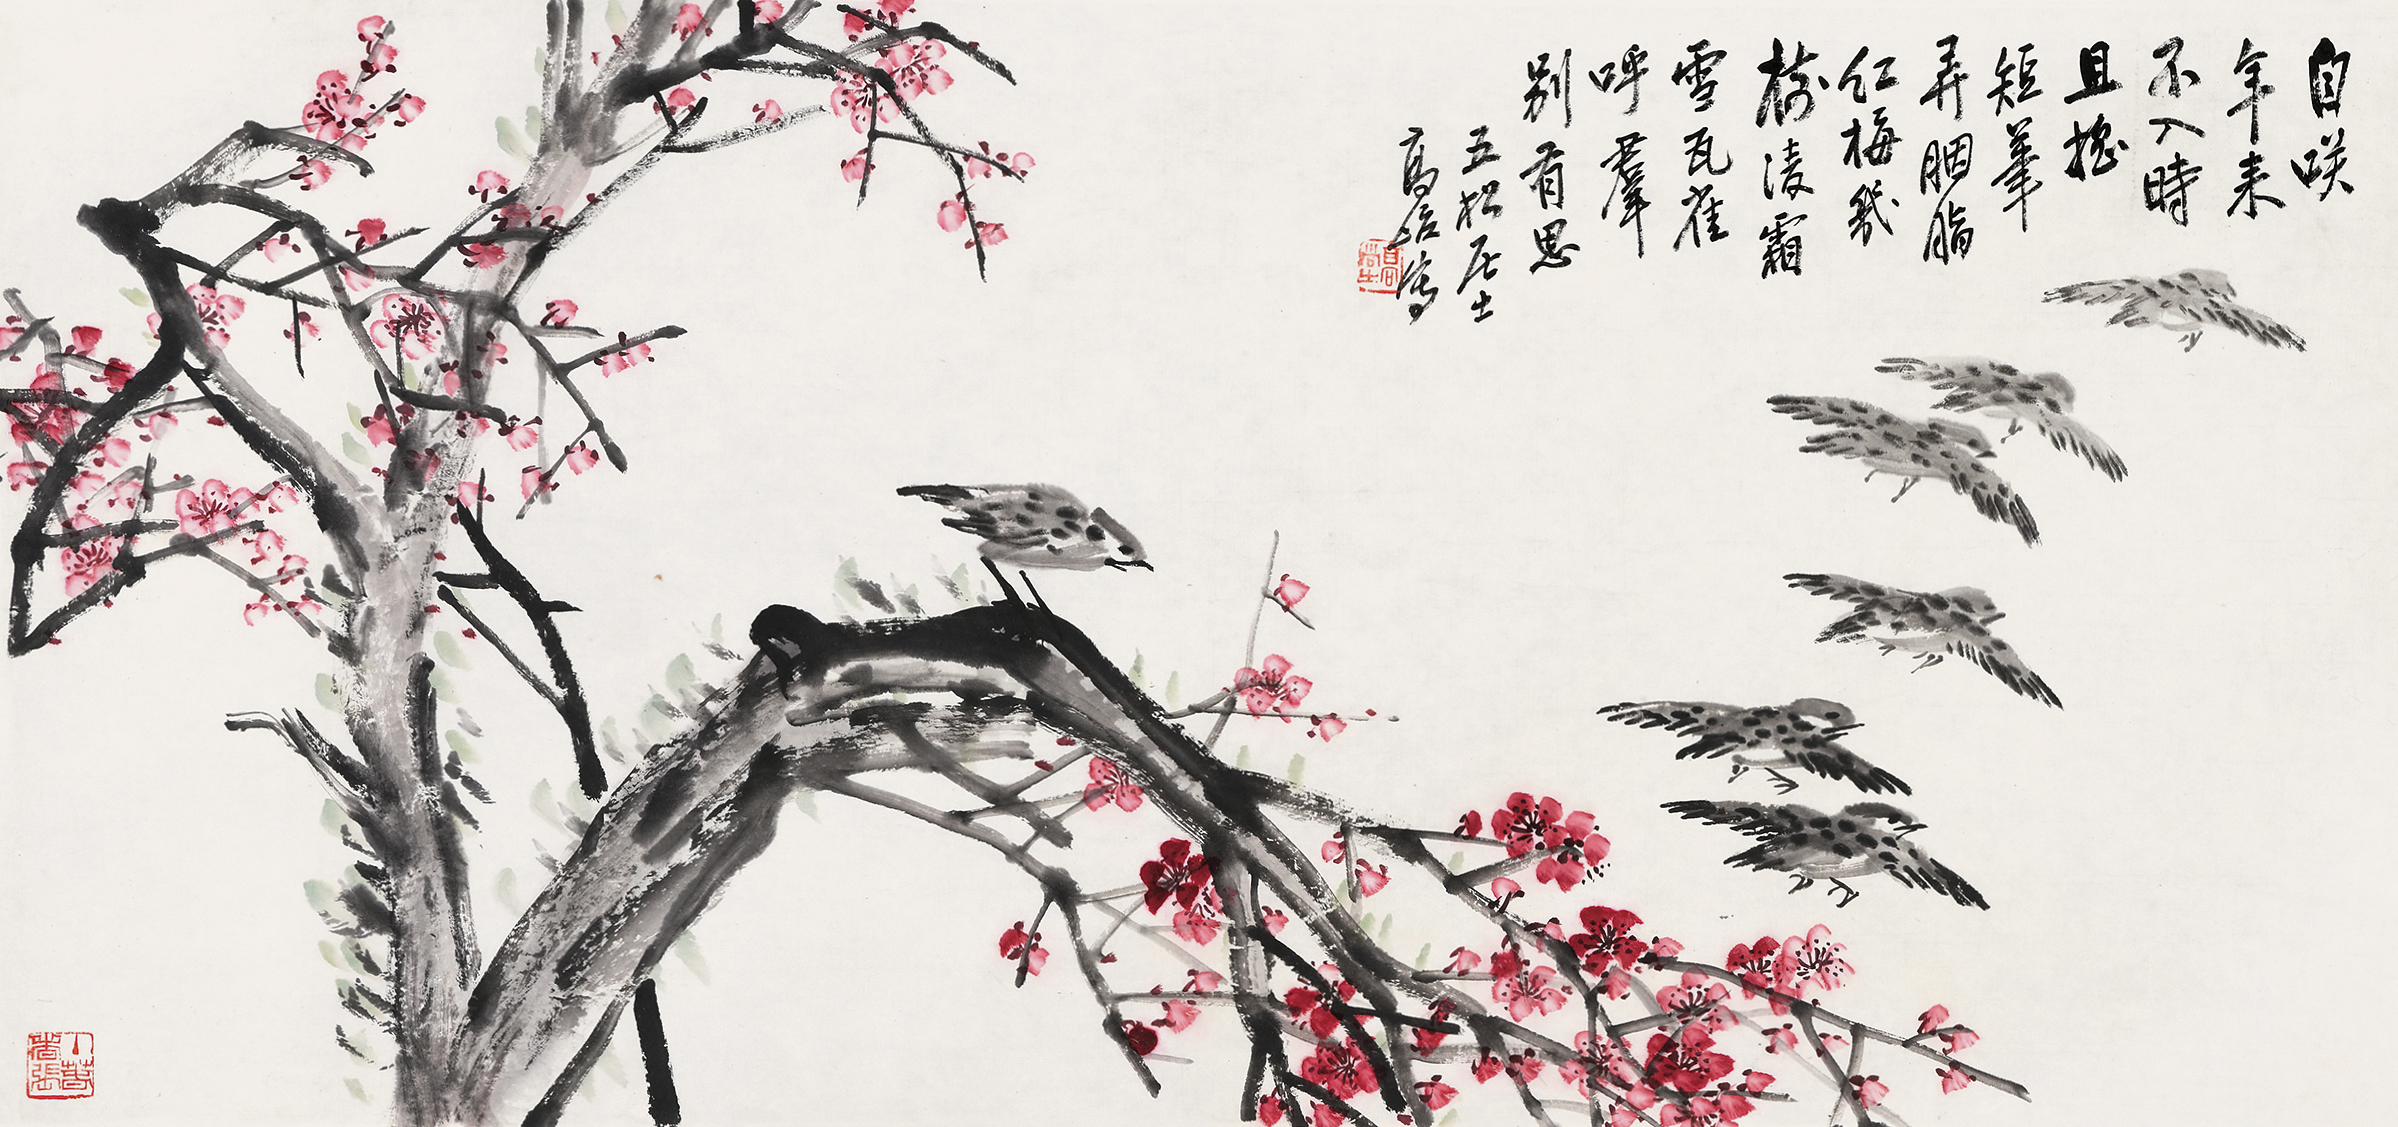 自咲
年来
不入時
且搖
短筆
弄胭脂
红梅几
樹凌霜
雪瓦雀
呼羣
别有思
五松居士
高
寫